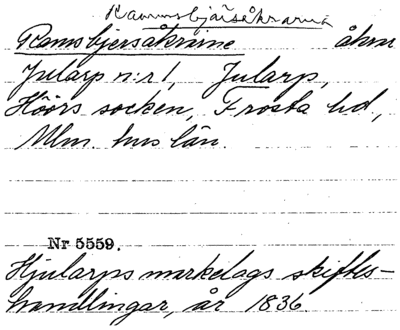 Rammsbjärsåkrarna
Ramsbjersåkrine åkrn
Jularp n:r 1, Jularp,
Höörs socken, Frosta hd,
Mlm. hus län.
Nr 5559.
Hjularps markelags skiftes-
handlingar, år 1836.